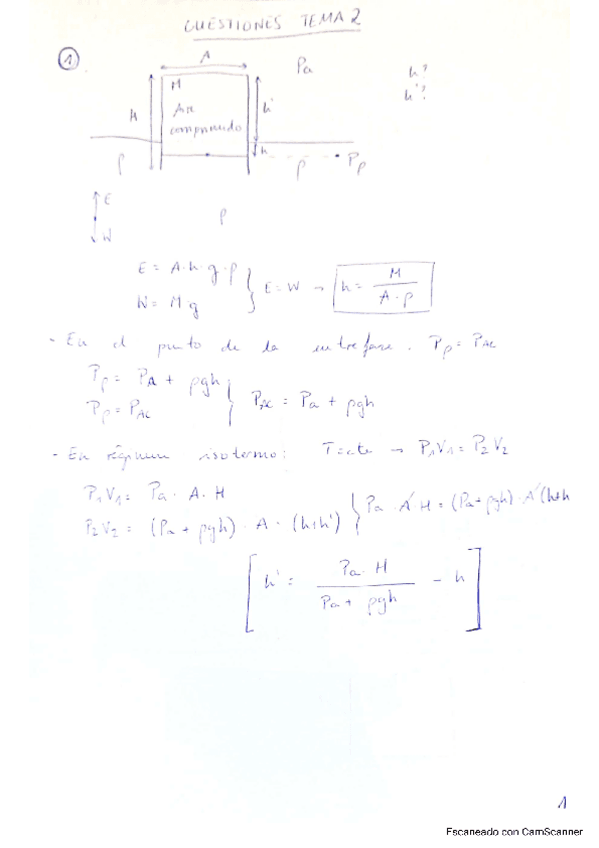 CUESTIONES TEMA 2
1
A
Pa
h?
h'?
M
H
Aire
comprimido
h'
h
ρ
ρ
Pp
E
W
ρ
E = A·h·g·ρ
W = Mg
E = W → h = M / A·ρ
- En el punto de la interfase. Pp = PAC
Pp = PA + ρgh
Pp = PAC
PAC = Pa + ρgh
- En régimen isotermo: T=cte → P1V1 = P2V2
P1V1 = Pa · A · H
P2V2 = (Pa + ρgh) · A · (h+h')
Pa · A H = (Pa + ρgh) · A (h+h
h' = Pa · H / Pa + ρgh - h
1
Escaneado con CamScanner